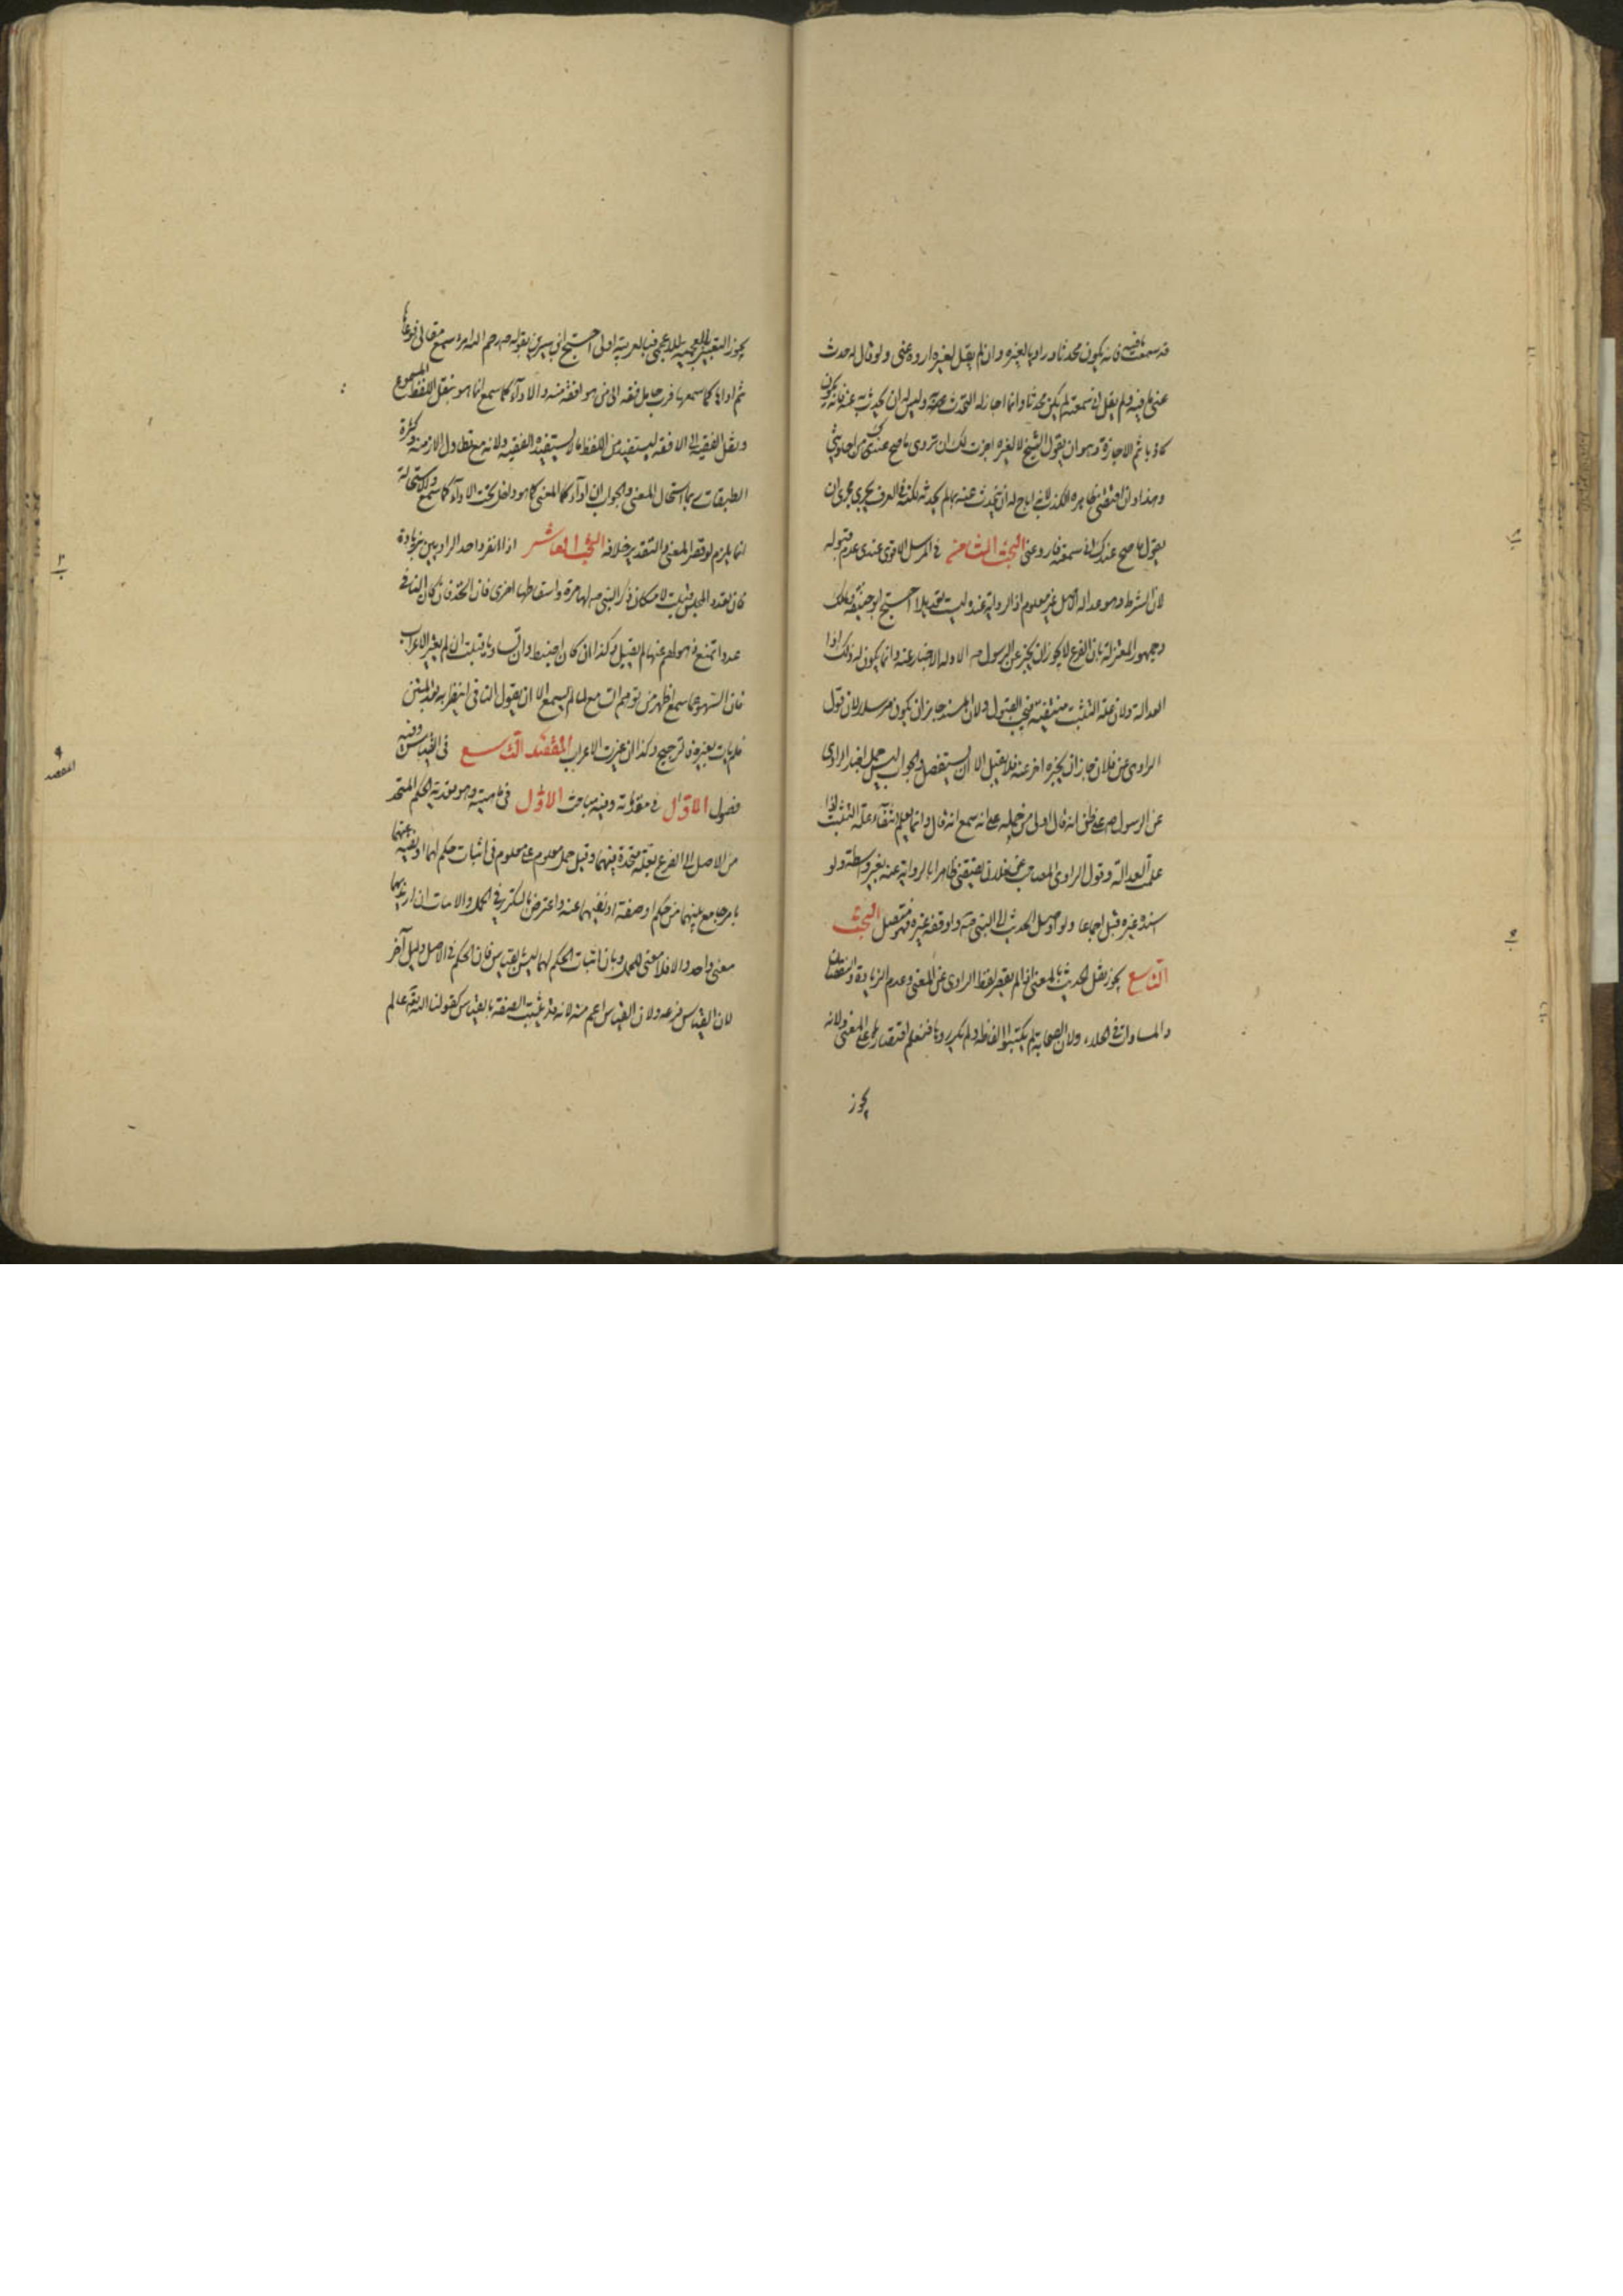 قد سمعت ما فيه فانه يكون محدثا وراويا لغيره وان لم يقل لغيره اروه عنى ولو قال له حدث
عنى ما فيه ولم يقل انى سمعته لم يكن محدثا وانما اجاز له التحدث به وليس له ان يحدث به عنه فانه يكون
كاذبا ثم الاجازة وهو ان يقول الشيخ لغيره اجزت لك ان تروى ما صح عندك من احاديثى
وهذا وان اقتضى ظاهره الكذب لانه اباح له ان يتحدث عنه بما لم يحدثه لكنه فى العرف يجرى مجرى ان
يقول ما صح عندك انى سمعته فاروه عنى البحث الثامن فى المرسل الاقوى عندى عدم قبوله
لان الشرط وهو عدالة الاصل غير معلوم اذ الرواية عنه ليست تعديلا احتج ابو حنيفة ومالك
وجمهور المعتزلة بان الفرع لا يجوز ان يخبر عن الرسول ص الا وله الاخبار عنه وانما يكون له ذلك اذا
العدالة ولان علة التثبت منتفية فيجب القبول ولان المسند جاز ان يكون مرسلا لان قول
الراوى عن فلان جاز ان يخبره اخر عنه فلا يقبل الا ان يستفصل والجواب ليس حمل اخبار الراوى
عن الرسول ص على ظن انه قال اولى من حمله على انه سمع انه قال وانما يعلم انتفاء علة التثبت اذا
علمت العدالة وقول الراوى المصاحب عن فلان يقتضى ظاهرا بالرواية عنه بغير واسطة ولو
اسنده غيره قبل اجماعا ولو اوصل الحديث الى النبى ص ولو وقفه غيره فهو متصل البحث
التاسع يجوز نقل الحديث بالمعنى اذا لم يقصر لفظ الراوى عن المعنى وعدم الزيادة والنقصان
والمساواة فى الجلاء ولان الصحابة لم يكتبوا الفاظه ولم يكرروها فنعلم اقتصارهم على المعنى ولانه
يجوز
يجوز التعبير بالعجمية للاعجمى فبالعربية اولى احتج ابن سيرين بقوله ص رحم الله امرء سمع مقالتى فوعاها
ثم اداها كما سمعها فرب حامل فقه الى من هو افقه منه والاداء كما سمع انما هو بنقل اللفظ المسموع
ونقل الفقيه الى الافقه ليستفيد من اللفظ ما لا يستفيده الفقيه ولانه مع تطاول الازمنة وكثرة
الطبقات ربما استحال المعنى والجواب ان اداء كمال المعنى كما هو داخل تحت الاداء كما سمع والاستحالة
انما يلزم لو قصر المعنى والتقدير خلافه البحث العاشر اذا انفرد احد الراويين بزيادة
فان تعدد المجلس قبلت لامكان ذكر النبى ص لها مرة واسقاطها اخرى فان اتحد فان كان النافى
عددا تمتنع ذهولهم عنها لم يقبل وكذا ان كان اضبط وان تساويا قبلت ان لم يغير الاعراب
فان السهو عما سمع اظهر من توهم السماع لما لم يسمع الا ان يقول النافى انتظر بعد المتن
فلم يات بغيره فالترجيح وكذا ان غيرت الاعراب المقصد التاسع فى القياس وفيه
فصول الاول فى مقدماته وفيه مباحث الاول فى ماهيته وهو تعدية الحكم المتحد
من الاصل الى الفرع بعلة متحدة بينهما وقيل حمل معلوم على معلوم فى اثبات حكم لهما او نفيه عنهما
بامر جامع بينهما من حكم او صفة او نفيهما عنه واعترض بالتكرر فى الحمل والاثبات ان اريد بهما
معنى واحد والا فلا معنى للحمل وبان اثبات الحكم لهما ليس بالقياس فان الحكم فى الاصل دليل آخر
لان القياس فرعه ولان القياس اعم منه لانه قد يثبت الصفة بالقياس كقولنا الله تعالى عالم
٩
المقصد